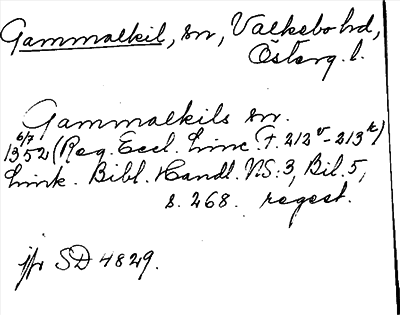 Gammalkil, sn, Valkebo hd,
Österg. l.
Gammalkils sn.
6/7
1352 (Reg. Eccl. Linc. F. 212v-213r)
Link. Bibl. Handl. NS:3, Bil. 5,
s. 268. regest.
jfr SD 4829.